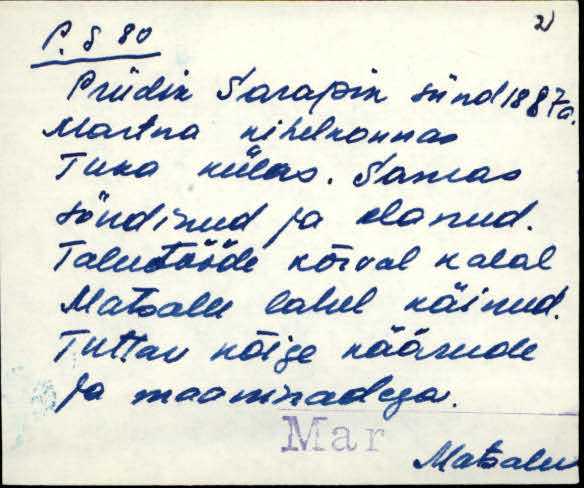 2)
P. S 80
Priidik Sarapik sünd 1887a.
Martna kihelkonnas
Tuka külas. Samas
sündinud ja elanud.
Talutööde kõrval kalal
Matsalu lahel käinud.
Tuttav kõige käärude
ja maaninadega.
Mar
Matsalu